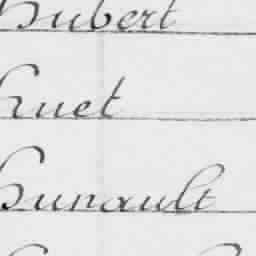 Hubert
Huet
Hunault